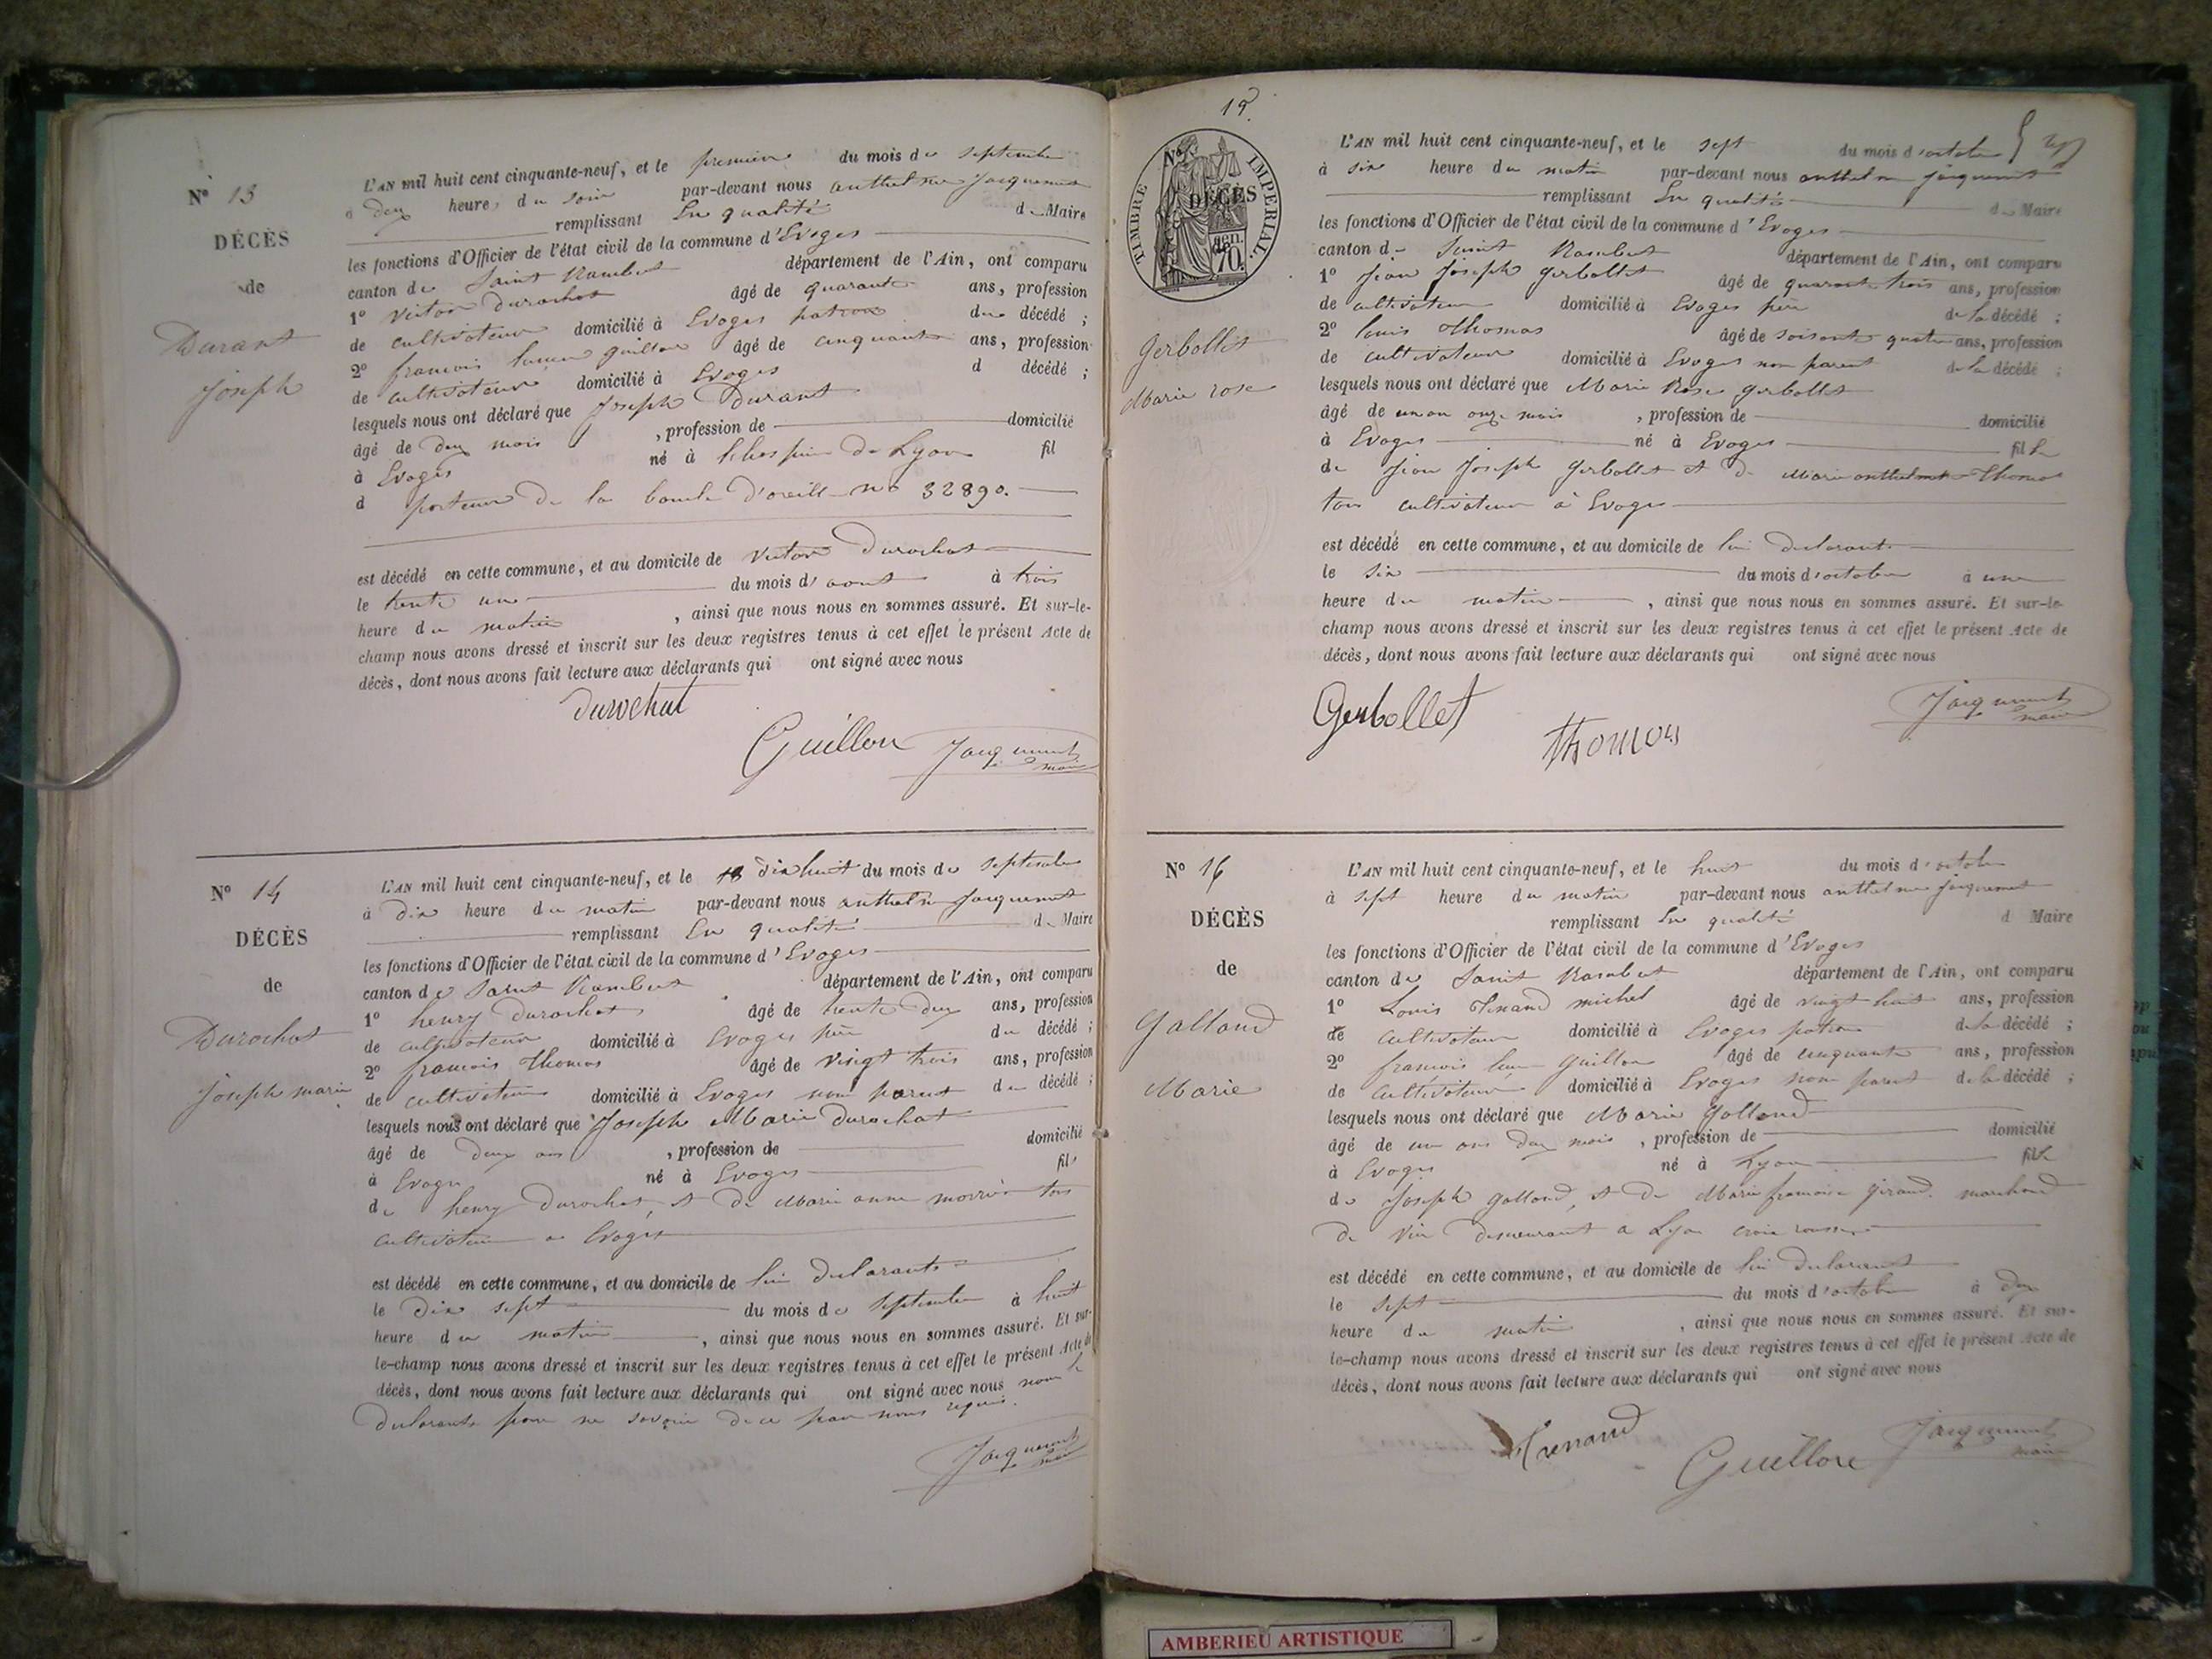 N° 13
DÉCÈS
de
Durant
Joseph
L'AN mil huit cent cinquante-neuf, et le premier du mois de septembre
à deux heure du soir par-devant nous anthelme Jacquemet
remplissant En qualité de Maire
les fonctions d'Officier de l'état civil de la commune d'Evoges
canton de Saint Rambert département de l'Ain, ont comparu
1° victor Durochat âgé de quarante ans, profession
de cultivateur domicilié à Evoges patron du décédé ;
2° francois guillon âgé de cinquante ans, profession
de cultivateur domicilié à Evoges d décédé ;
lesquels nous ont déclaré que Joseph Durant
âgé de deux mois , profession de domicilié
à Evoges né à l'hospice de Lyon fil
d porteur de la boucle d'oreille n° 32890.
est décédé en cette commune, et au domicile de victor Durochat
le trente un du mois d'aout à trois
heure du matin , ainsi que nous nous en sommes assuré. Et sur-le-
champ nous avons dressé et inscrit sur les deux registres tenus à cet effet le présent Acte de
décès, dont nous avons fait lecture aux déclarants qui ont signé avec nous
durochat
Guillon Jacquemet
maire
N° 14
DÉCÈS
de
Durochat
Joseph marie
L'AN mil huit cent cinquante-neuf, et le 18 dix huit du mois de septembre
à dix heure du matin par-devant nous anthelme Jacquemet
remplissant En qualité de Maire
les fonctions d'Officier de l'état civil de la commune d'Evoges
canton de Saint Rambert département de l'Ain, ont comparu
1° henry Durochat âgé de trente deux ans, profession
de cultivateur domicilié à Evoges père du décédé ;
2° francois Thomas âgé de vingt trois ans, profession
de cultivateur domicilié à Evoges non parent du décédé ;
lesquels nous ont déclaré que Joseph Marie Durochat
âgé de deux ans , profession de domicilié
à Evoges né à Evoges fils
de henry Durochat, et de Marie anne tous
cultivateur a Evoges
est décédé en cette commune, et au domicile de lui declarant
le dix sept du mois de septembre à huit
heure du matin , ainsi que nous nous en sommes assuré. Et sur-
le-champ nous avons dressé et inscrit sur les deux registres tenus à cet effet le présent Acte de
décès, dont nous avons fait lecture aux déclarants qui ont signé avec nous non le
declarants pour ne savoir de ce par nous requis.
Jacquemet
maire
19.
TIMBRE IMPÉRIAL.
70.
N°
DÉCÈS
de
Gerbollet
Marie rose
L'AN mil huit cent cinquante-neuf, et le sept du mois d'octobre
à six heure du matin par-devant nous anthelme Jacquemet
remplissant En qualité de Maire
les fonctions d'Officier de l'état civil de la commune d'Evoges
canton de Saint Rambert département de l'Ain, ont comparu
1° Jean Joseph gerbollet âgé de quarante trois ans, profession
de cultivateur domicilié à Evoges père de la décédé ;
2° louis Thomas âgé de soixante quatre ans, profession
de cultivateur domicilié à Evoges non parent de la décédé ;
lesquels nous ont déclaré que Marie Rose gerbollet
âgé de un an onze mois , profession de domicilié
à Evoges né à Evoges fille
de Jean Joseph Gerbollet et de Marie anthelmette Thomas
tous cultivateur à Evoges
est décédé en cette commune, et au domicile de lui declarant
le six du mois d'octobre à une
heure du matin , ainsi que nous nous en sommes assuré. Et sur-le-
champ nous avons dressé et inscrit sur les deux registres tenus à cet effet le présent Acte de
décès, dont nous avons fait lecture aux déclarants qui ont signé avec nous
Gerbollet
Thomas
Jacquemet
maire
N° 16
DÉCÈS
de
Galland
Marie
L'AN mil huit cent cinquante-neuf, et le huit du mois d'octobre
à sept heure du matin par-devant nous anthelme Jacquemet
remplissant En qualité d Maire
les fonctions d'Officier de l'état civil de la commune d'Evoges
canton de Saint Rambert département de l'Ain, ont comparu
1° Louis michel âgé de vingt huit ans, profession
de cultivateur domicilié à Evoges patron de la décédé ;
2° francois guillon âgé de cinquante ans, profession
de cultivateur domicilié à Evoges non parent de la décédé ;
lesquels nous ont déclaré que Marie Galland
âgé de un ans deux mois , profession de domicilié
à Evoges né à Lyon fille
de Joseph galland, et de Marie francoise giraud marchand
de vin demeurant a Lyon croix rousse
est décédé en cette commune, et au domicile de lui declarant
le sept du mois d'octobre à deux
heure du matin , ainsi que nous nous en sommes assuré. Et sur-
le-champ nous avons dressé et inscrit sur les deux registres tenus à cet effet le présent Acte de
décès, dont nous avons fait lecture aux déclarants qui ont signé avec nous
Guillon
Jacquemet
maire
AMBERIEU ARTISTIQUE